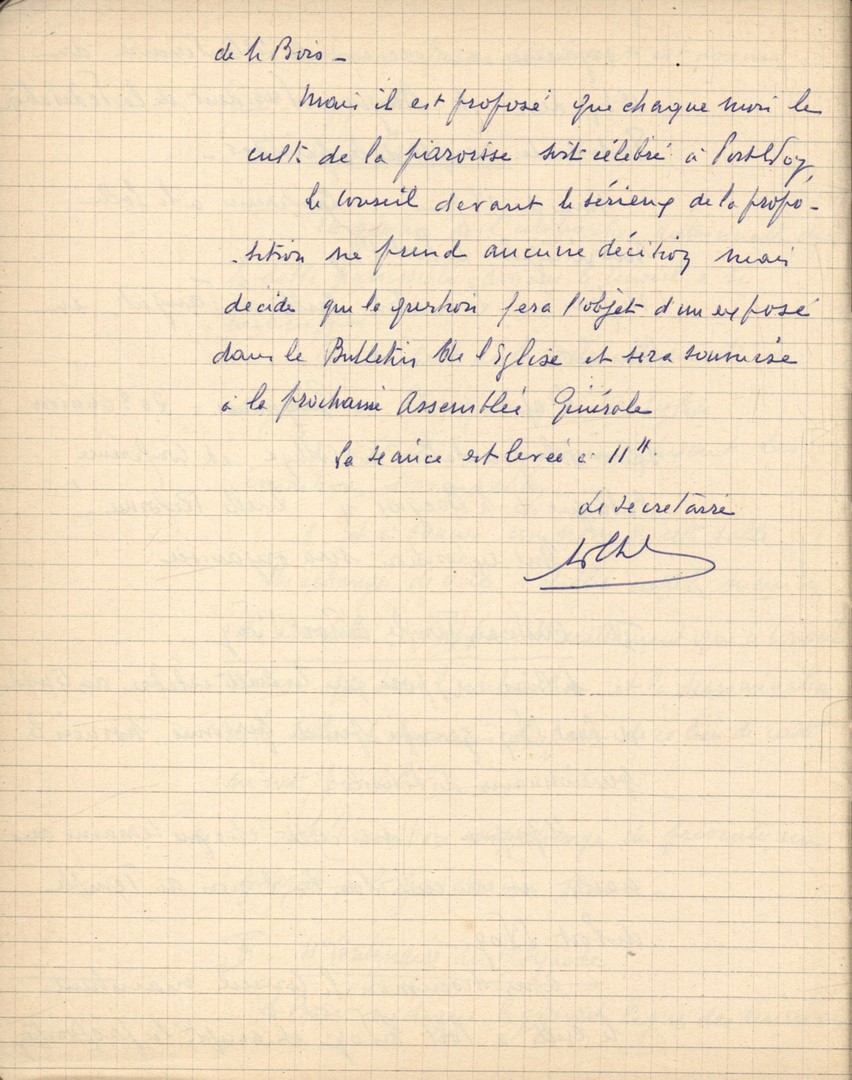 de h Bois -
Mais il est proposé que chaque mois le
culte de la paroisse soit célébré à Port Goy
Le Conseil devant le sérieux de la propo-
sition ne prend aucune décision mais
décide que la question fera l'objet d'un exposé
dans le Bulletin de l'Eglise et sera soumise
à la prochaine Assemblée Générale
La séance est levée à 11 H.
Le secrétaire